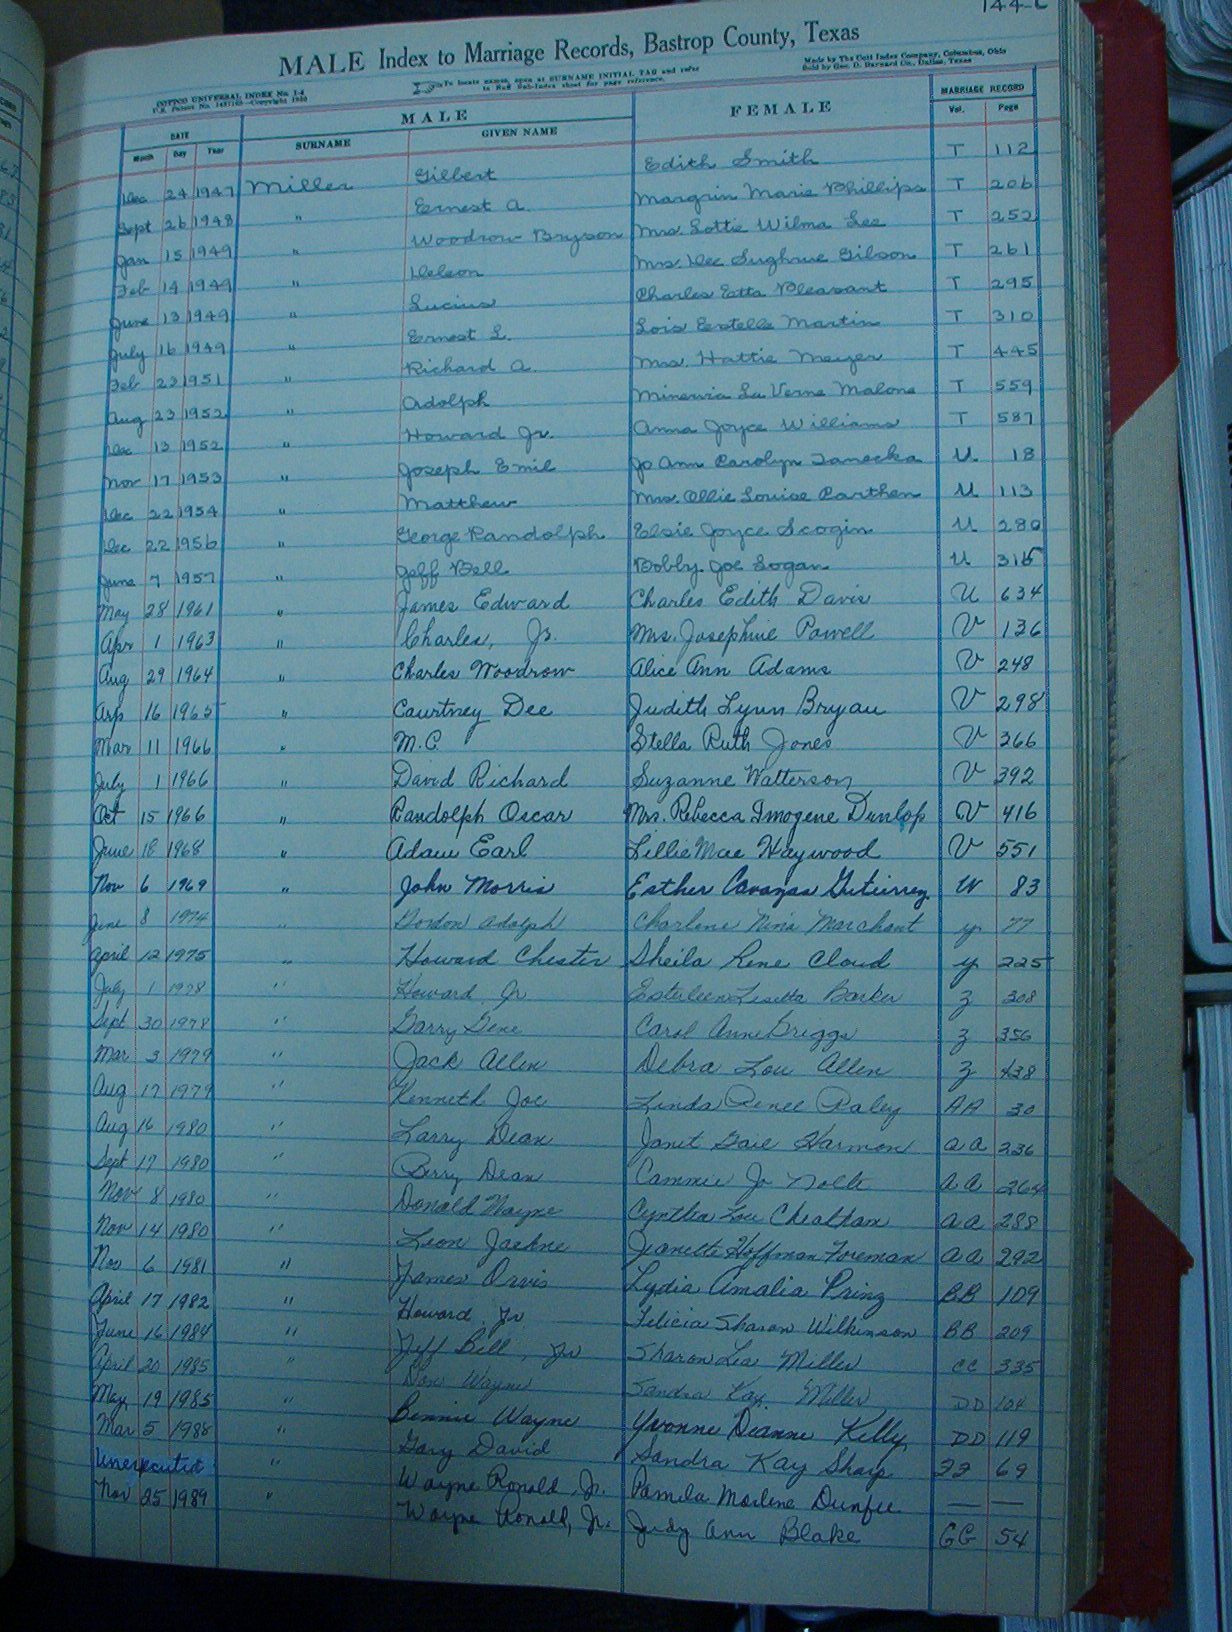 144-C
MALE Index to Marriage Records, Bastrop County, Texas
To locate names, open at SURNAME INITIAL TAB and refer
to Red Sub-Index sheet for page reference.
Made by The Cott Index Company, Columbus, Ohio
Sold by Geo. D. Barnard Co., Dallas, Texas
COTTCO UNIVERSAL INDEX No. 1-4
DATE MALE FEMALE MARRIAGE RECORD
Month Day Year SURNAME GIVEN NAME Vol. Page
Dec 24 1947 Miller Gilbert Edith Smith T 112
Sept 26 1948 " Ernest A. Margrin Marie Phillips T 206
Jan 15 1949 " Woodrow Bryson Mrs. Lottie Wilma Lee T 252
Feb 14 1949 " Delson Mrs. Dee Sughrue Gibson T 261
June 13 1949 " Lucius Charles Etta Pleasant T 295
July 16 1949 " Ernest L. Lois Estelle Martin T 310
Feb 23 1951 " Richard A. Mrs. Hattie Meyer T 445
Aug 23 1952 " Adolph Minervia La Verne Malone T 559
Dec 13 1952 " Howard Jr. Anna Joyce Williams T 587
Nov 17 1953 " Joseph Emil Jo Ann Carolyn Janecka U 18
Dec 22 1954 " Matthew Mrs. Ollie Louise Carthen U 113
Dec 22 1956 " George Randolph Elsie Joyce Scogin U 280
June 7 1957 " Jeff Bell Bobby Joe Logan U 315
May 28 1961 " James Edward Charles Edith Davis U 634
Apr 1 1963 " Charles, Jr. Mrs. Josephine Powell V 136
Aug 29 1964 " Charles Woodrow Alice Ann Adams V 248
Arp 16 1965 " Courtney Dee Judith Lynn Bryan V 298
Mar 11 1966 " M.C. Stella Ruth Jones V 366
July 1 1966 " David Richard Suzanne Watterson V 392
Oct 15 1966 " Randolph Oscar Mrs. Rebecca Imogene Dunlop V 416
June 18 1968 " Adam Earl Lillie Mae Haywood V 551
Nov 6 1969 " John Morris Esther Cavazas Gutierrez W 83
June 8 1974 " Gordon Adolph Charlene Nina Marchant Y 77
April 12 1975 " Howard Chester Sheila Rene Cloud Y 225
July 1 1978 " Howard, Jr Esterleen Lisetta Barker Z 308
Sept 30 1978 " Garry Gene Carol Anne Griggs Z 356
Mar 3 1979 " Jack Allen Debra Lou Allen Z 438
Aug 17 1979 " Kenneth Joe Linda Renee Raley AA 30
Aug 16 1980 " Larry Dean Janet Gail Harmon AA 236
Sept 17 1980 " Perry Dean Cammie Jo Nolte AA 264
Nov 8 1980 " Donald Wayne Cynthia Lou Cheatham AA 288
Nov 14 1980 " Leon Jaehne Jeanette Hoffman Foreman AA 292
Nov 6 1981 " James Orvis Lydia Amalia Prinz BB 109
April 17 1982 " Howard, Jr Felicia Sharon Wilkinson BB 209
June 16 1984 " Jeff Bill, Jr Sharon Lea Miller CC 335
April 20 1985 " Don Wayne Sandra Kay Miller DD 104
May 19 1985 " Bennie Wayne Yvonne Deanne Kelly DD 119
Mar 5 1988 " Gary David Sandra Kay Sharp FF 69
Unexecuted " Wayne Ronald, Jr. Pamela Marlene Dunfee — —
Nov 25 1989 " Wayne Ronald, Jr. Judy Ann Blake GG 54